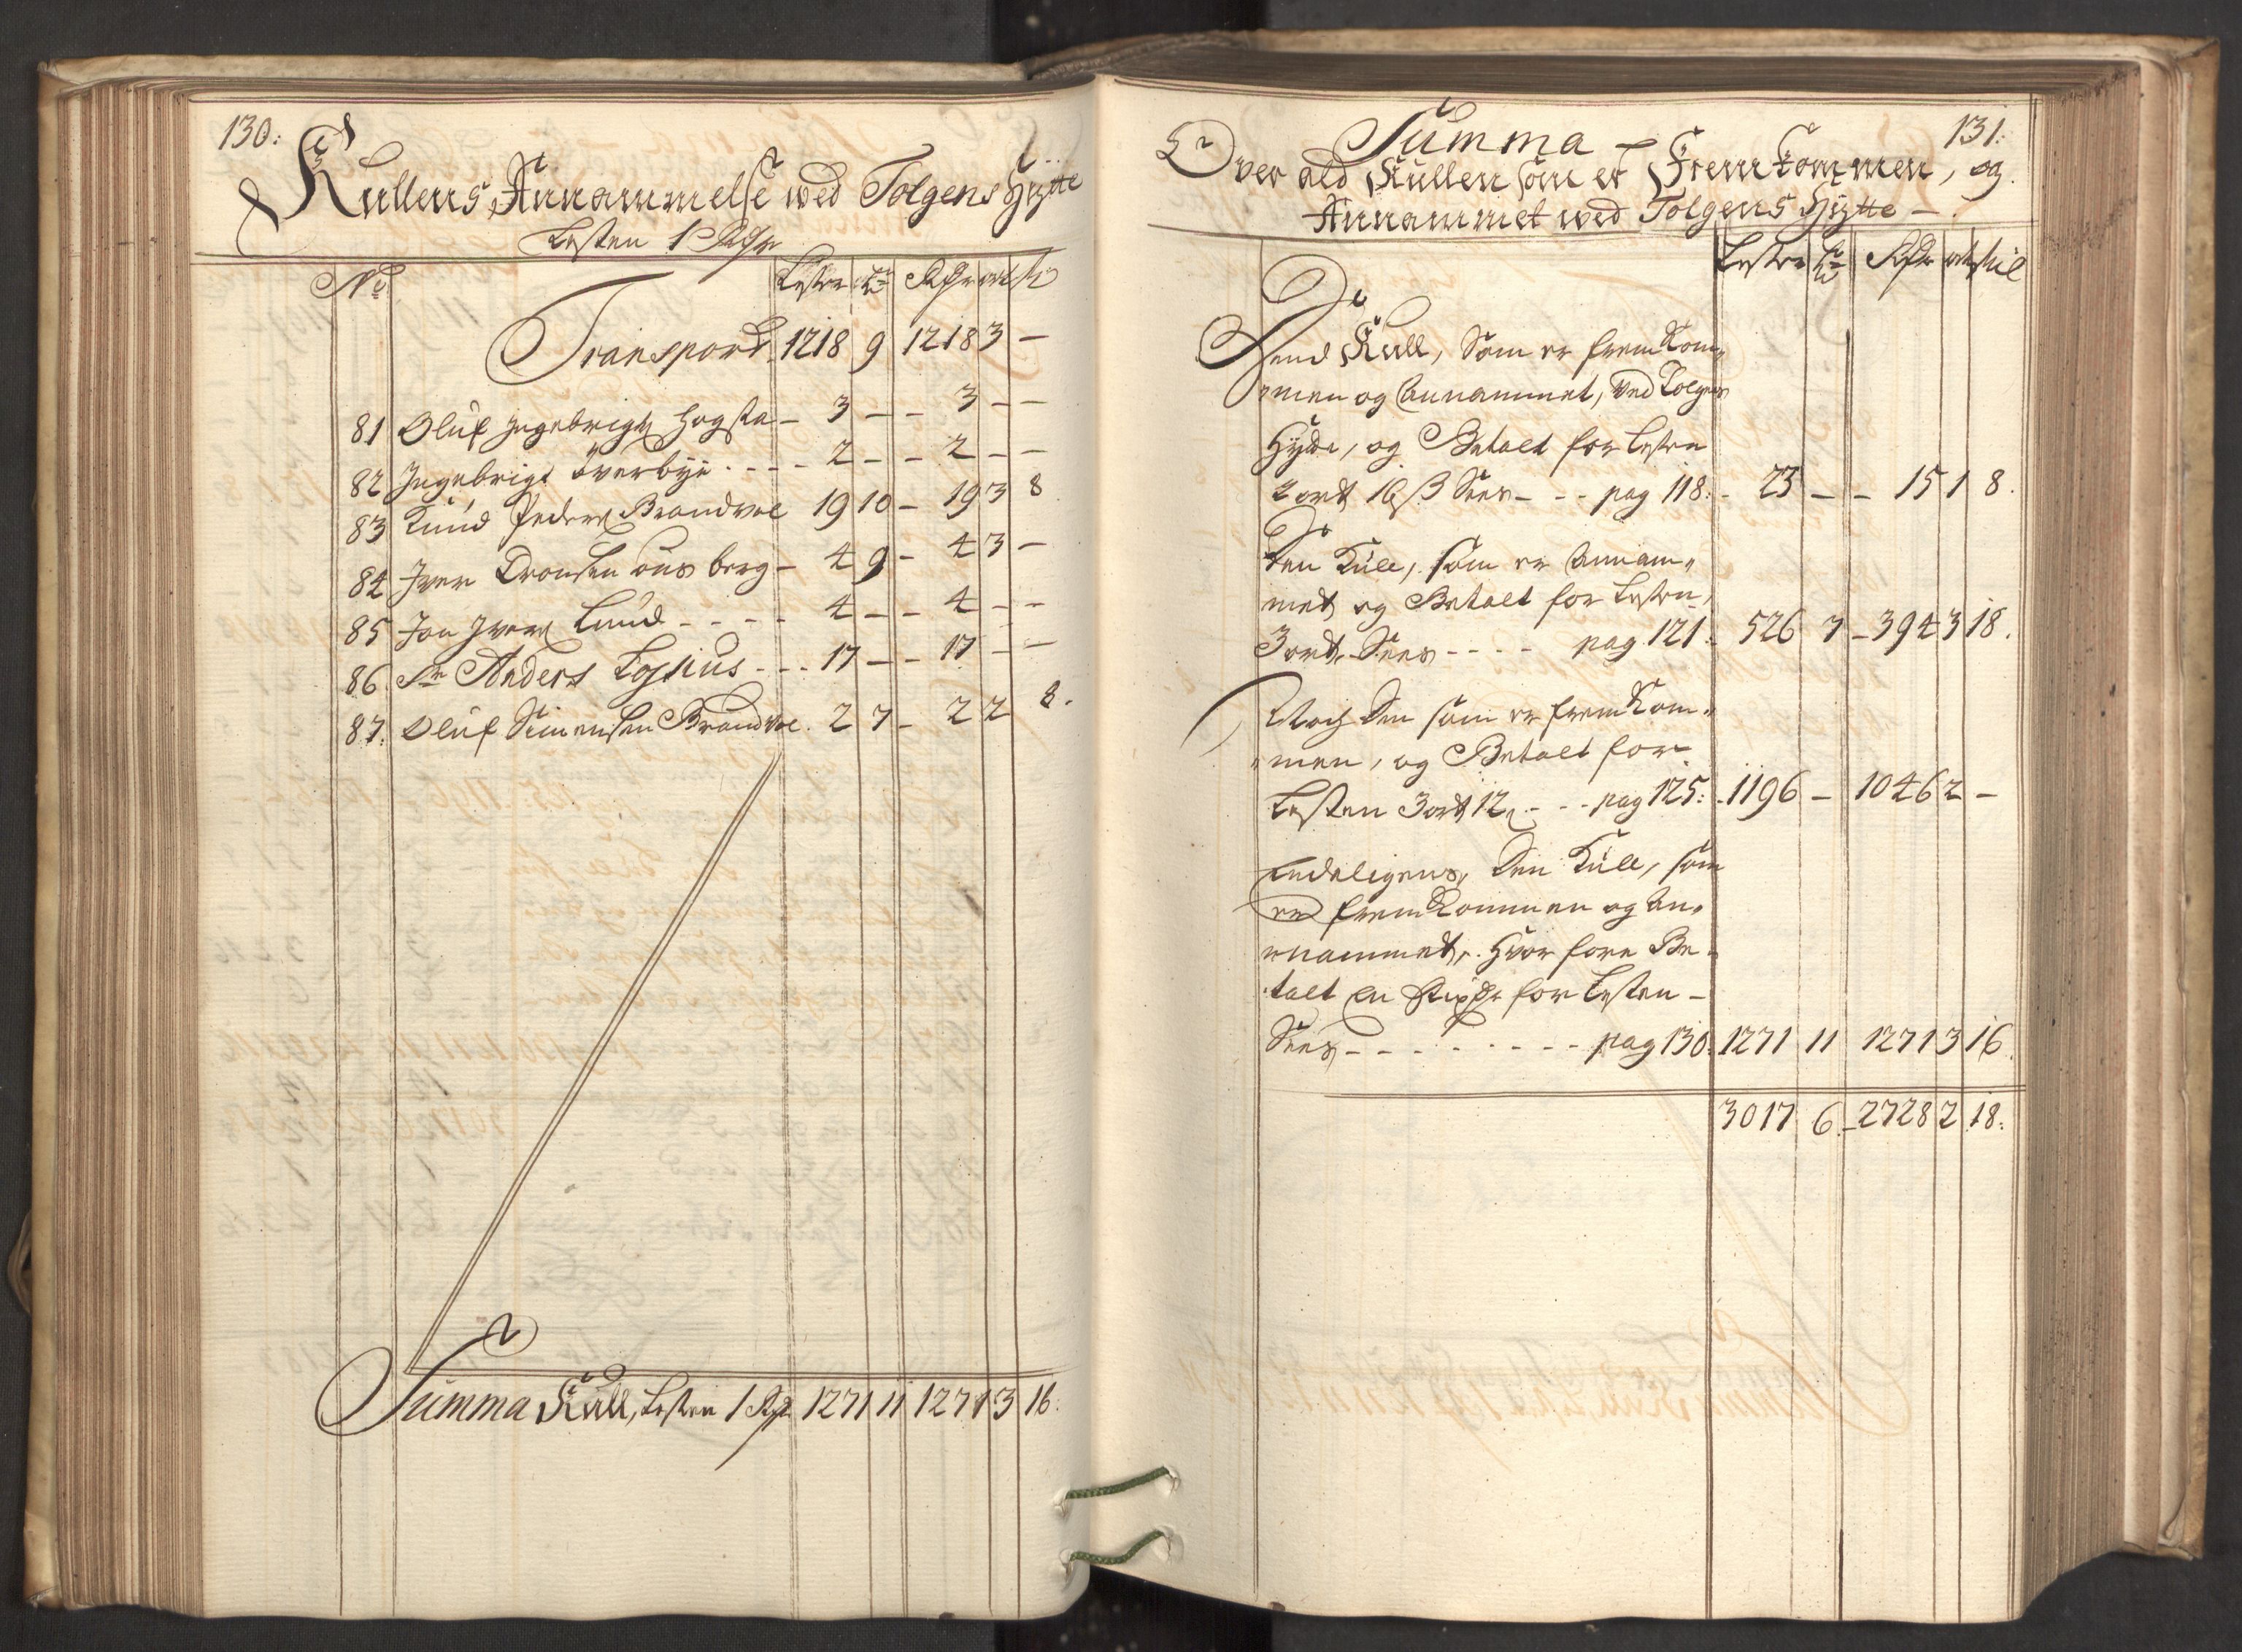 130:
Kullens Annammelse wed Tolgens Hytte
Lesten 1 Rdr
No Lester tr Rdr ort ß
Transport 1218 9 1218 3 –
81 Oluf Ingebrigts Hogsta – 3 – – 3 – –
82 Ingebrigt Överbye . – – – 2 – – 2 – –
83 Knud Peders Brandvol 19 10 – 19 3 8
84 Iver Tronsen ousberg – 4 9 – 4 3 –
85 Jon Ivers Lund – – – – 4 – – 4 – –
86 Sr Anders Lossius – – . 17 – – 17 – –
87. Oluf Simensen Brandvol . 2 7 – 2 2 8.
Summa Kull, Lesten 1 Rdr 1271 11 1271 3 16:
131:
Summa –
Over ald Kullen som er Fremkommen, og
Annammet wed Tolgens Hytte –
Lester tr Rdr ort skil
Dend Kull, Som er fremkom„
„men og Annammet, ved Tolgens
Hytte, og Betalt for Lesten
2 ort 16 ß Sees – – – pag 118: – 23 – – 15 1 8.
Den Kull, som er Annam„
met og Betalt for Lesten,
3 ort. Sees – – – – pag 121: 526 7 – 394 3 18.
Noch Den som er fremkom„
„men, og Betalt for
Lesten 3 ort 12 . – – pag 125: 1196 – 1046 2 –
Endeligens, Den Kull, som
er fremkommen og An„
„nammet, Hvor fore Be„
talt en Rixdr for Lesten –
Sees – – – – – – – – pag 130: 1271 11 1271 3 16.
3017 6 – 2728 2 18: